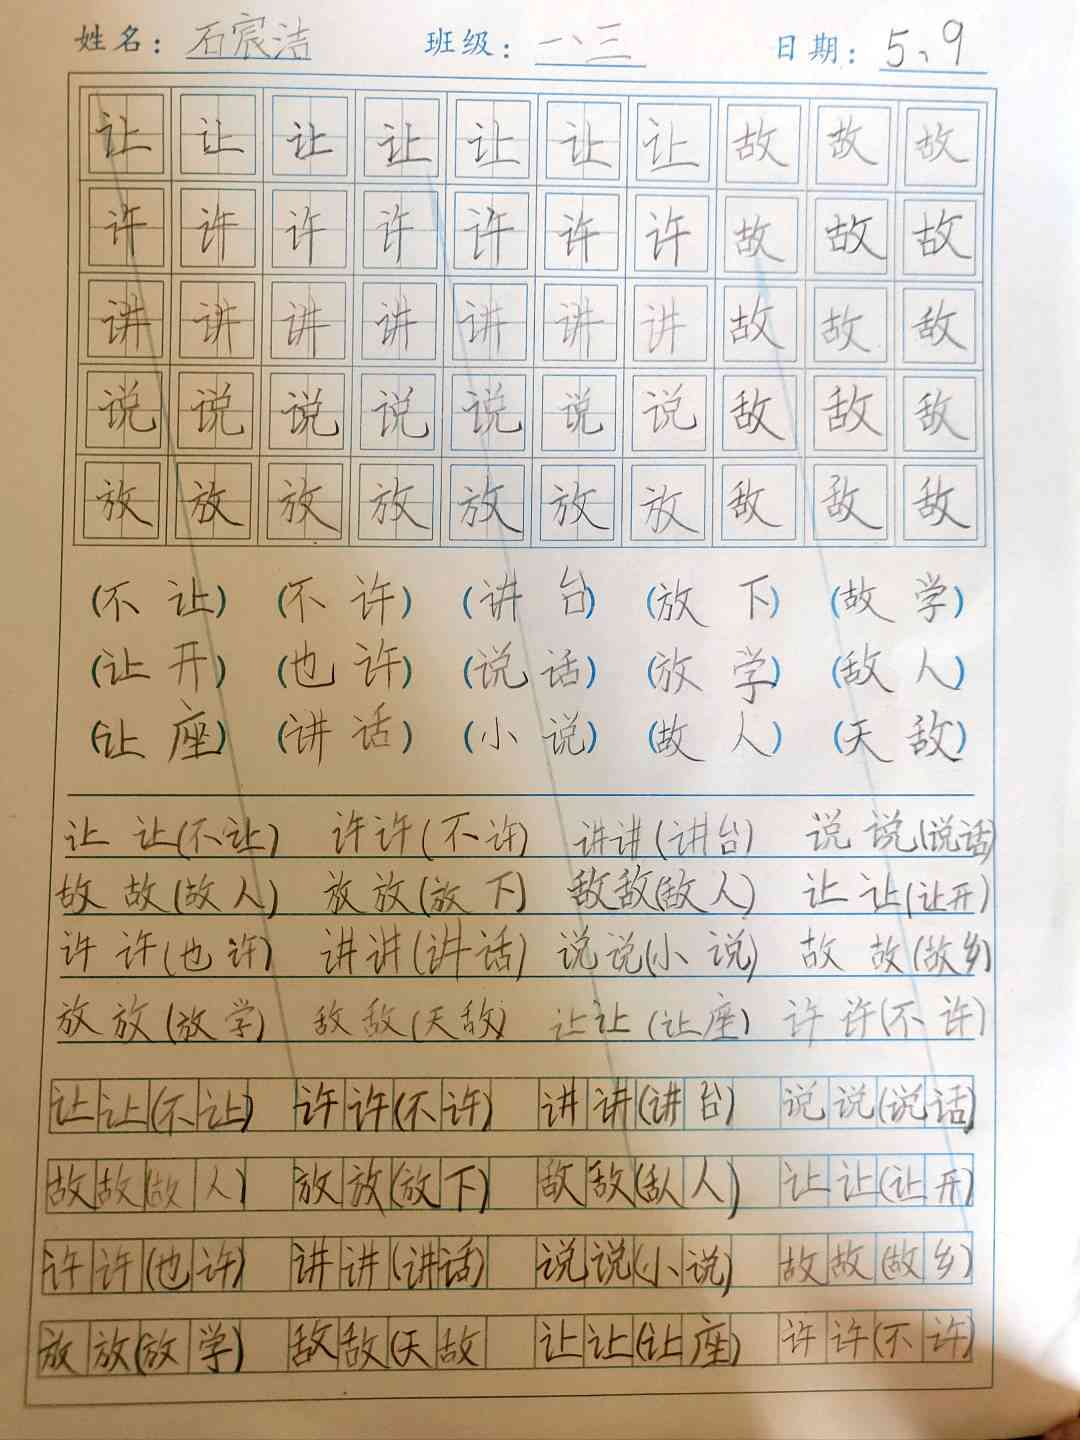 姓名: 石宸洁 班级: 一、三 日期: 5、9
让 让 让 让 让 让 让 故 故 故
许 许 许 许 许 许 许 故 故 故
讲 讲 讲 讲 讲 讲 讲 故 故 敌
说 说 说 说 说 说 说 敌 敌 敌
放 放 放 放 放 放 放 敌 敌 敌
(不 让) (不 许) (讲 台) (放 下) (故 学)
(让 开) (也 许) (说 话) (放 学) (敌 人)
(让 座) (讲 话) (小 说) (故 人) (天 敌)
让 让(不让) 许许(不许) 讲讲(讲台) 说说(说话)
故 故(故人) 放放(放下) 敌敌(敌人) 让让(让开)
许许(也许) 讲讲(讲话) 说说(小说) 故故(故乡)
放放(放学) 敌敌(天敌) 让让(让座) 许许(不许)
让让(不让) 许许(不许) 讲讲(讲台) 说说(说话)
故故(故人) 放放(放下) 敌敌(敌人) 让让(让开)
许许(也许) 讲讲(讲话) 说说(小说) 故故(故乡)
放放(放学) 敌敌(天故 让让(让座) 许许(不许)